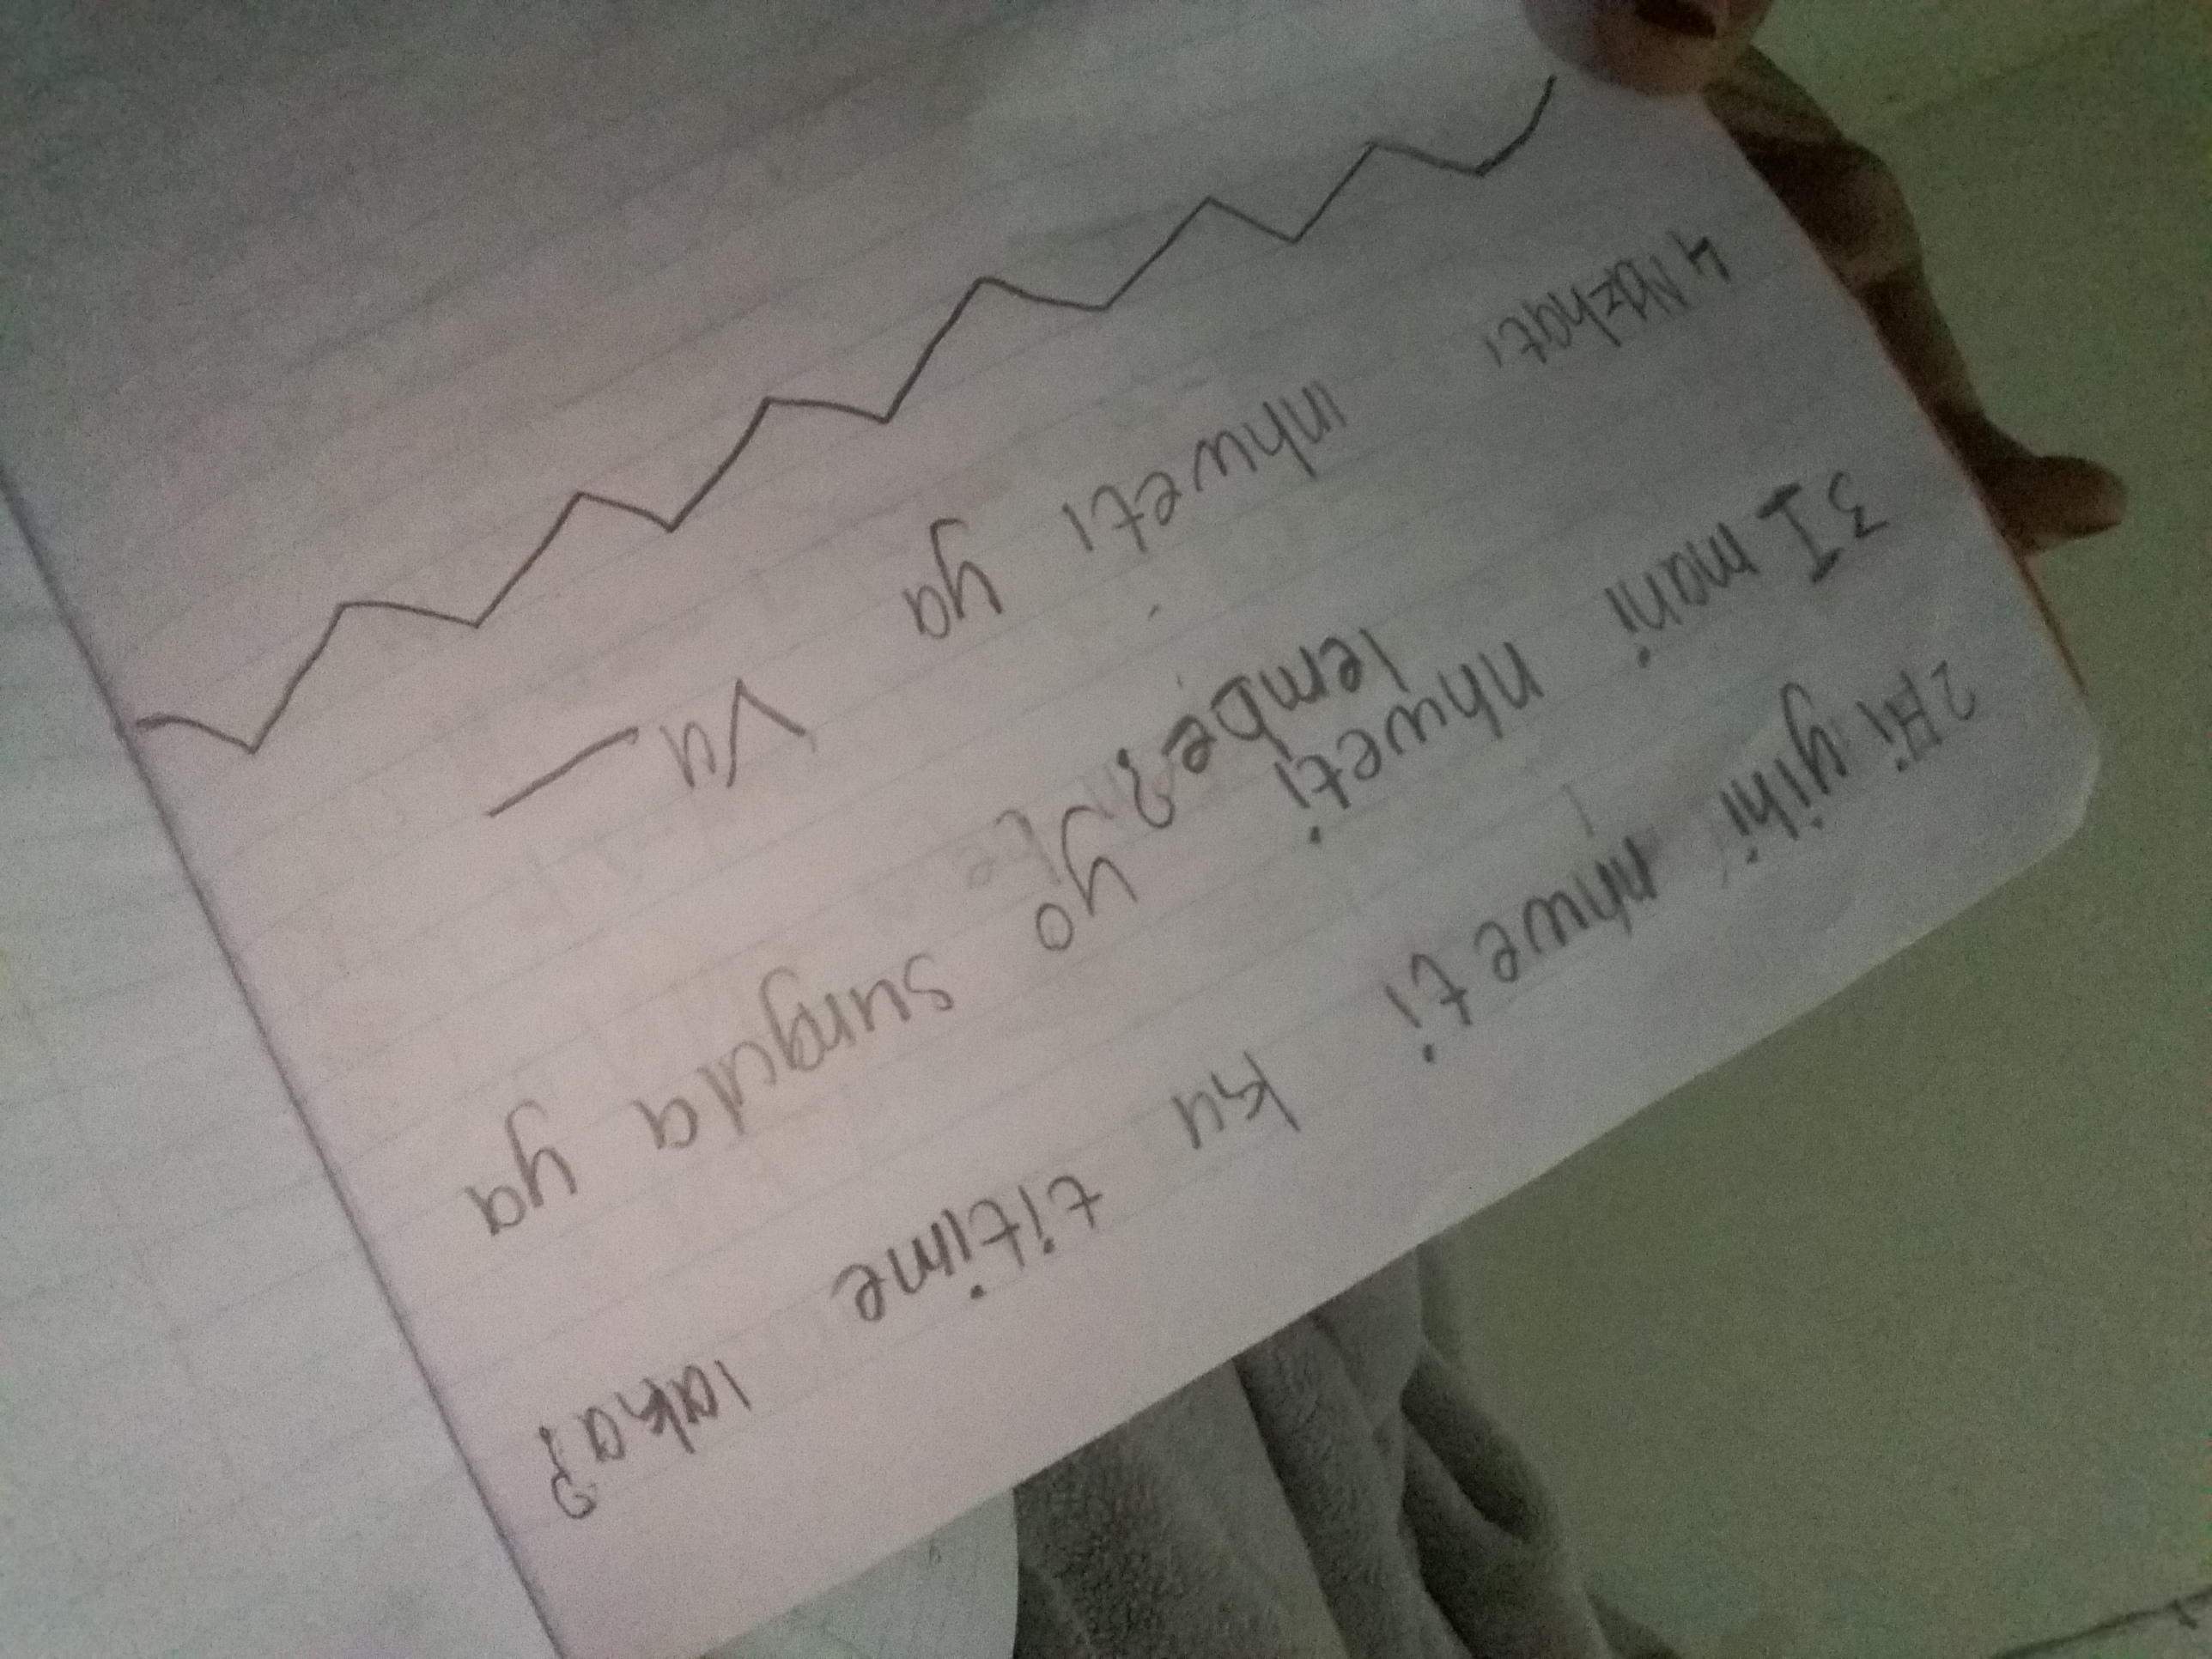 2 Hi yihi nhweti ku titime laka?
3 I mani nhweti yo sungula ya
lembe?
4 Ndzhati inhweti ya Vu